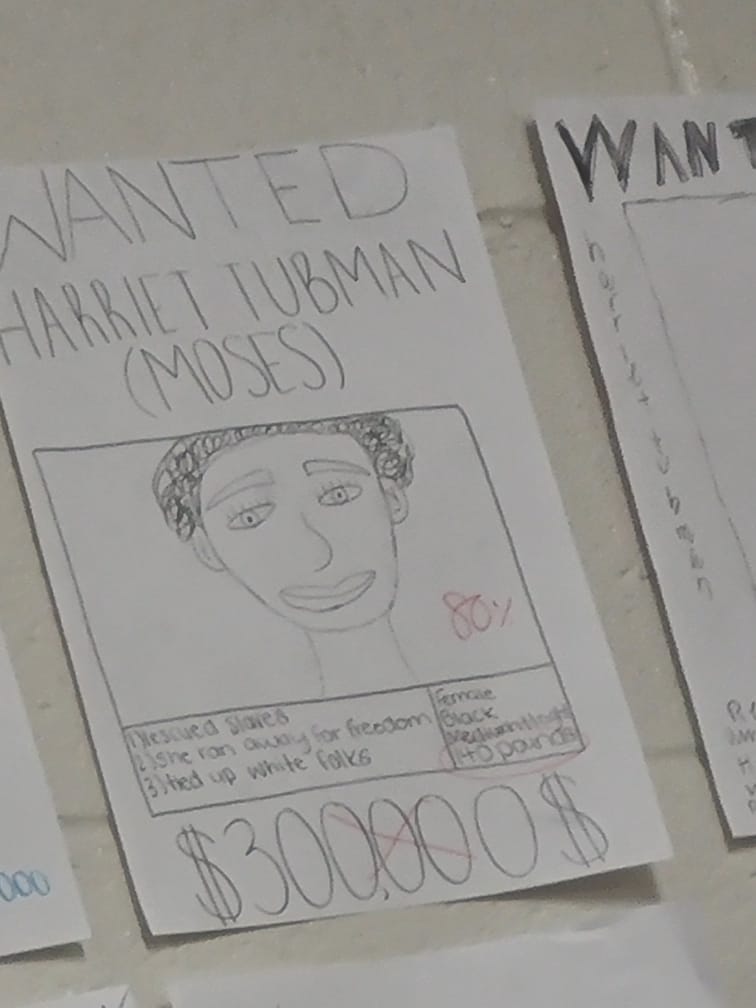 WANTED
HARRIET TUBMAN
(MOSES)
80%
1) rescued slaves
2) she ran away for freedom
3) tied up white folks
female
Black
Medium height
140 pounds
$300,000$
WANT
harriet tubman
000